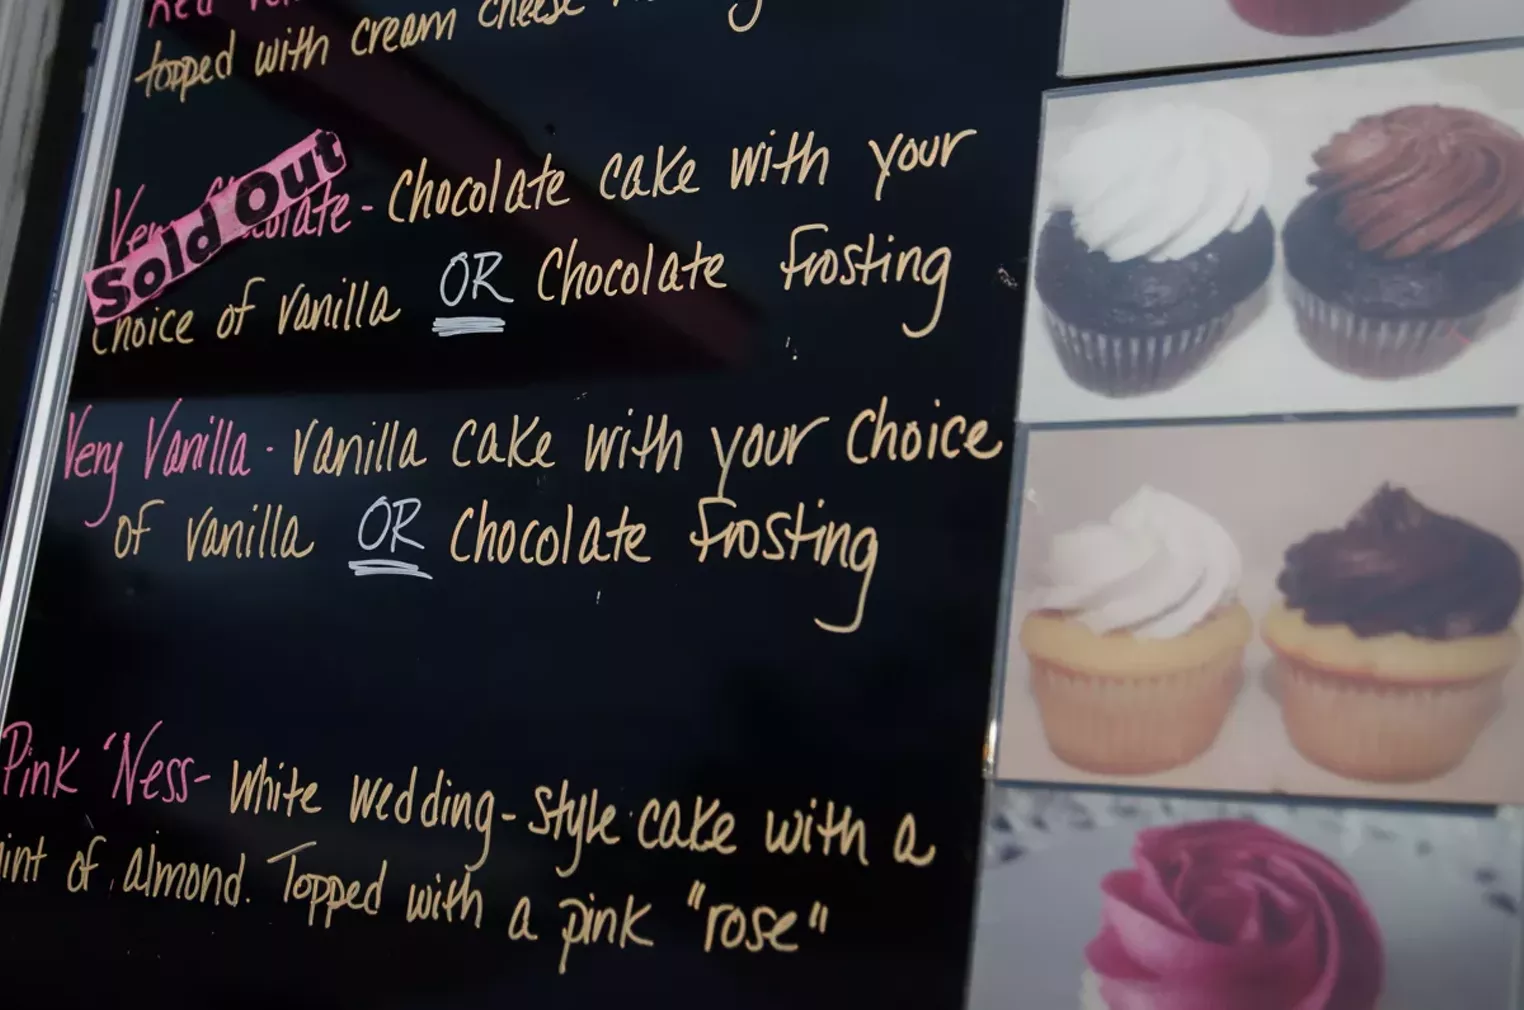 Red
topped with cream cheese
Very Chocolate - Chocolate cake with your
Sold Out
Choice of vanilla OR Chocolate Frosting
Very Vanilla - Vanilla cake with your Choice
of vanilla OR Chocolate Frosting
Pink 'Ness - White wedding-style cake with a
of almond. Topped with a pink "rose"